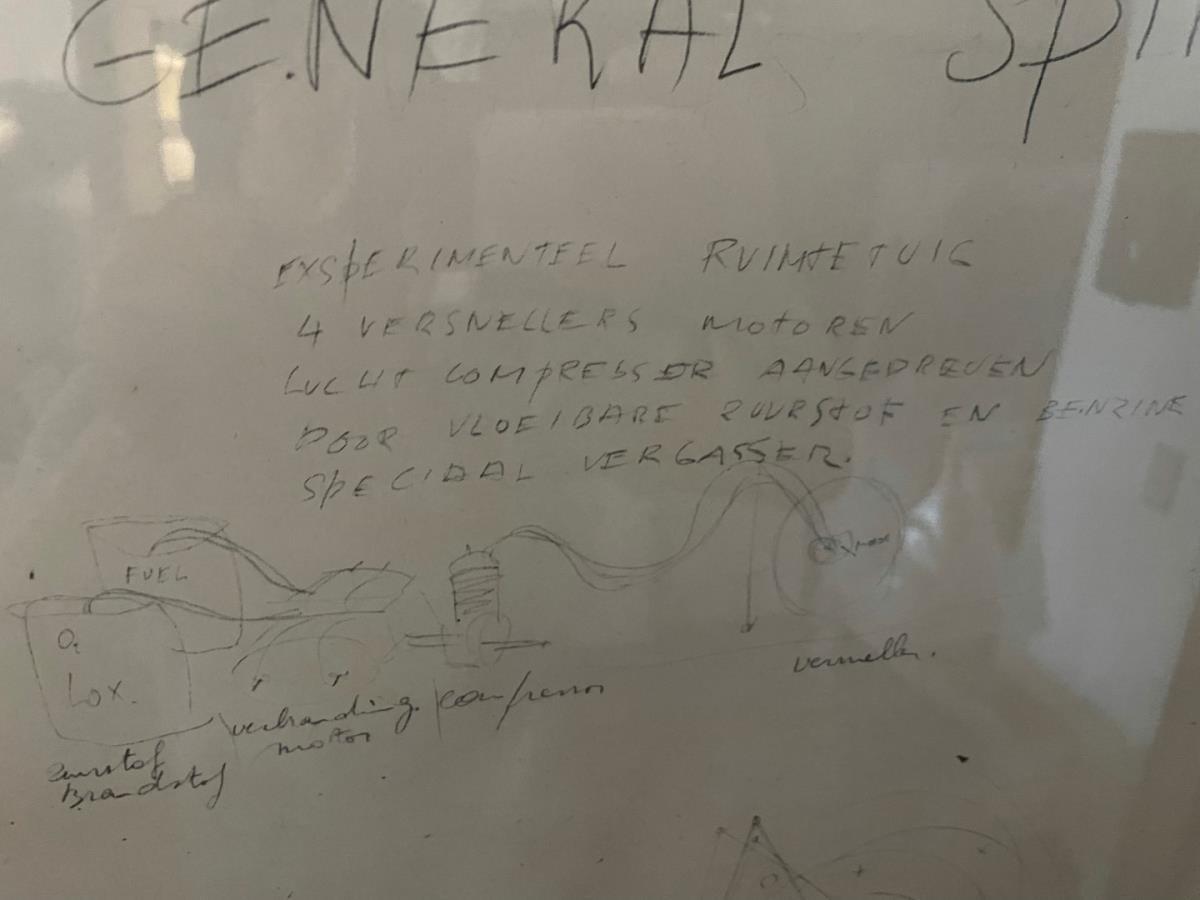 GENERAL SPI
EXSPERIMENTEEL RUIMTETUIG
4 VERSNELLERS MOTOREN
LUCHT COMPRESSER AANGEDREVEN
DOOR VLOEIBARE ZUURSTOF EN BENZINE
SPECIAAL VERGASSER.
FUEL
O2
LOX.
max
versneller.
verbranding. compressor
motor
zuurstof
Brandstof